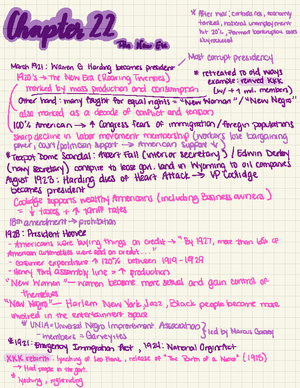 Chapter 22
The New Era
* After war: controls rise, economy
tanked, national unemployment
March 1921: Warren G Harding becomes president
Most corrupt presidency
1920's → The New Era (Roaring Twenties)
marked by mass production and consumption
* retreated to old ways
example: revived KKK
(w/ +1 mil. members)
Other hand: many fought for equal rights = "New Woman" / "New Negro"
also marked as a decade of conflict and tension
(100% American → ↑ Congress fears of immigration/foreign populations
Sharp decline in labor movement membership (workers lose bargaining
power, court/politician support → American support ↓)
* Teapot Dome Scandal: Albert Fall (interior secretary) / Edwin Denby
(navy secretary) conspire to lease gov. land in Wyoming to oil companies
August 1923: Harding dies of Heart Attack → VP Coolidge
becomes president
Coolidge supports wealthy Americans (including Business owners)
= ↓ taxes + ↑ tariff rates
18th amendment → prohibition
1928: President Hoover
- Americans were buying things on credit → "By 1927, more than
American automobiles were sold on credit..."
- consumer expenditure ↑ 120% between 1919-1929
- Henry Ford assembly line = ↑ production
"New Woman" — women become more sexual and gain control of
themselves
"New Negro" — Harlem New York, Jazz, Black people become more
involved in the entertainment space
* UNIA = Universal Negro Improvement Association
- members = Garveyites
led by Marcus Garvey
* 1921: Emergency Immigration Act, 1924: National Origins Act
KKK rebirth: lynching of Leo Frank, release of "The Birth of a Nation" (1915)
→ Had people in the govt.
* lynching,